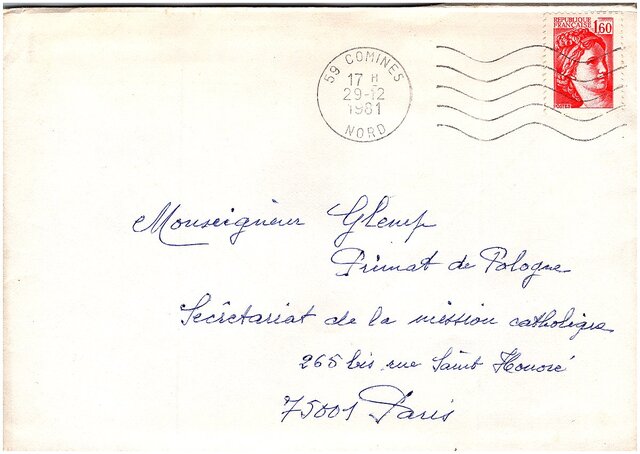 REPUBLIQUE
FRANCAISE 1,60
59 COMINES
17 H
29-12
1981
NORD
Monseigneur Glemp
Primat de Pologne
Secrétariat de la mission catholique
265 bis rue Saint Honoré
75001 Paris